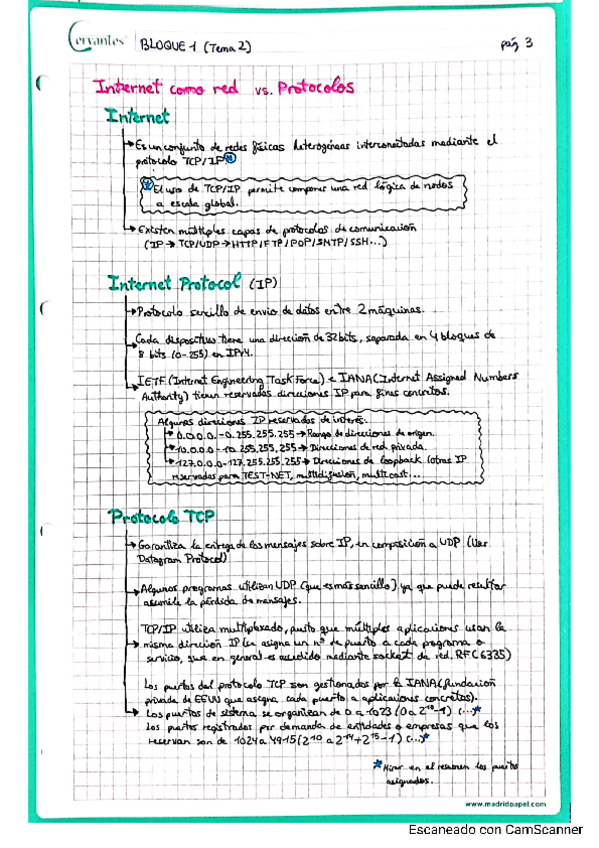 Cervantes BLOQUE 1 (Tema 2) pág 3
Internet como red vs. Protocolos
Internet
→ Es un conjunto de redes físicas heterogéneas interconectadas mediante el
protocolo TCP/IP*
* El uso de TCP/IP permite componer una red lógica de nodos
a escala global.
→ Existen múltiples capas de protocolos de comunicación
(IP → TCP/UDP → HTTP/FTP/POP/SMTP/SSH...)
Internet Protocol (IP)
→ Protocolo sencillo de envío de datos entre 2 máquinas.
→ Cada dispositivo tiene una dirección de 32 bits, separada en 4 bloques de
8 bits (0-255) en IPv4.
→ IETF (Internet Engineering Task Force) e IANA (Internet Assigned Numbers
Authority) tienen reservadas direcciones IP para fines concretos.
Algunas direcciones IP reservadas de interés.
→ 0.0.0.0 - 0.255.255.255 → Rango de direcciones de origen.
→ 10.0.0.0 - 10.255.255.255 → Direcciones de red privada.
→ 127.0.0.0 - 127.255.255.255 → Direcciones de loopback (otras IP
reservadas para TEST-NET, multidifusión, multicast...
Protocolo TCP
→ Garantiza la entrega de los mensajes sobre IP, en comparación a UDP (User
Datagram Protocol)
→ Algunos programas utilizan UDP (que es más sencillo) ya que puede resultar
asumible la pérdida de mensajes.
TCP/IP utiliza multiplexado, puesto que múltiples aplicaciones usan la
→ misma dirección IP (se asigna un nº de puerto a cada programa o
servicio, que en general es accedido mediante socket de red, RFC 6335)
Los puertos del protocolo TCP son gestionados por la IANA (fundación
privada de EEUU que asigna cada puerto a aplicaciones concretas).
→ Los puertos de sistema se organizan de 0 a 1023 (0 a 2^10-1) (...)*
Los puertos registrados por demanda de entidades o empresas que los
reservan son de 1024 a 4915 (2^10 a 2^14+2^15-1) (...)*
* Mirar en el resumen los puertos
asignados.
www.madridpapel.com
Escaneado con CamScanner